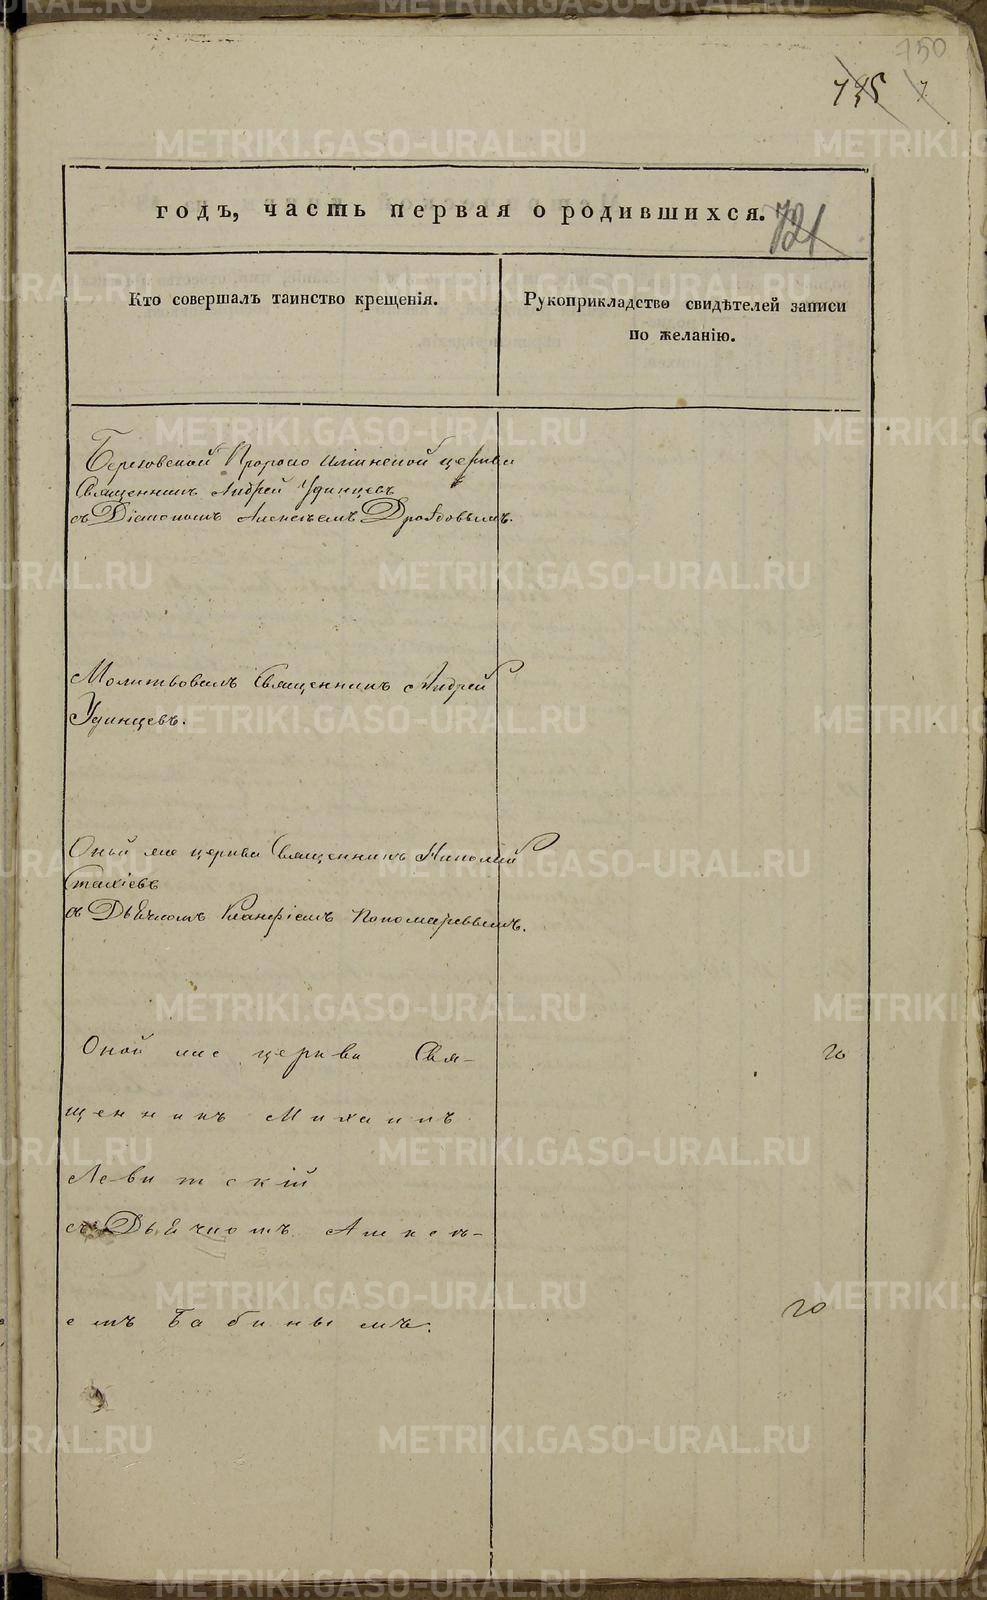 150
годъ, часть первая о родившихся.
721
Кто совершалъ таинство крещенія.
Рукоприкладство свидѣтелей записи
по желанію.
Березовской Пророко Илiинской церкви
Священникъ Андрей Удинцевъ
съ Діакономъ Алексѣемъ Дроздовымъ.
Молитвовалъ Священникъ Андрей
Удинцевъ.
Оной же церкви Священникъ Николай
Стахіевъ
съ Дьячкомъ Ксанфіемъ Пономаревымъ.
Оной же церкви Свя-
щенникъ Михаилъ
Левитскій
съ Дьячкомъ Алексѣ-
емъ Бабинымъ.
20
20
METRIKI.GASO-URAL.RU